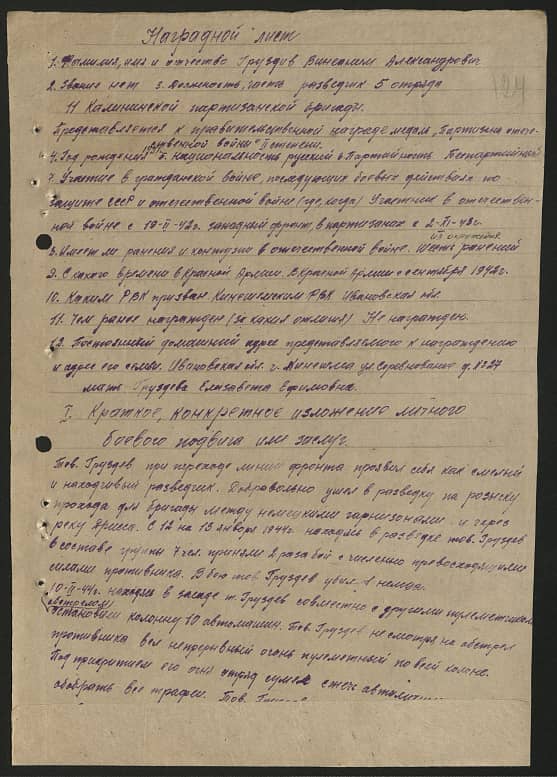 Наградной лист
124
1. Фамилия, имя и отчество Груздев Александрович
2. Звание нет 3. Должность, часть разведчик 5 отряда
11 Калининской партизанской бригады.
Представляется к правительственной награде медаль "Партизна отече-
ственной войны" II степени.
4. Год рождения 5. национальность русский 6 Партийность Беспартийный
7. Участие в гражданской войне, последующих боевых действиях по
защите СССР и отечественной войне (где, когда) Участник в отечествен-
ной войне с 10-II-42г. западный фронт, в партизанах с 2-XI-43г.
8. Имеет ли ранения и контузии в отечественной войне. Шесть ранений
9. С какого времени в Красной Армии. В Красной армии с сентября 1942г.
10. Каким РВК призван. Кинешемским РВК Ивановская обл.
11. Чем ранее награжден (за какия отличия) Не награжден.
12. Постоянный домашний адрес представляемого к награждению
и адрес его семьи. Ивановская обл. г. Кинешма ул. Соревнование д. №
мать Груздева Елизавета Ефимовна.
I. Краткое, конкретное изложение личного
боевого подвига или заслуг.
Тов. Груздев при переходе линии фронта проявил себя как смелый
и находчивый разведчик. Добровольно ушел в разведку по розыску
прохода для бригады между немецкими гарнизонами и через
реку Дрисса. С 12 на 13 января 1944г. находясь в разведке тов. Груздев
в составе группы 7 чел. приняли 2 раза бой с численно превосходящими
силами противника. В бою тов Груздев убил 1 немца.
10-II-44г. находясь в засаде т. Груздев совместно с другими пулеметчиками
обстрелом
остановили колонну 10 автомашин. Тов. Груздев несмотря на обстрел
противника вел непрерывный огонь пулеметный по всей колоне.
Под прикрытием его огня отряд сумел сжечь
обобрать все трафеи. Тов.